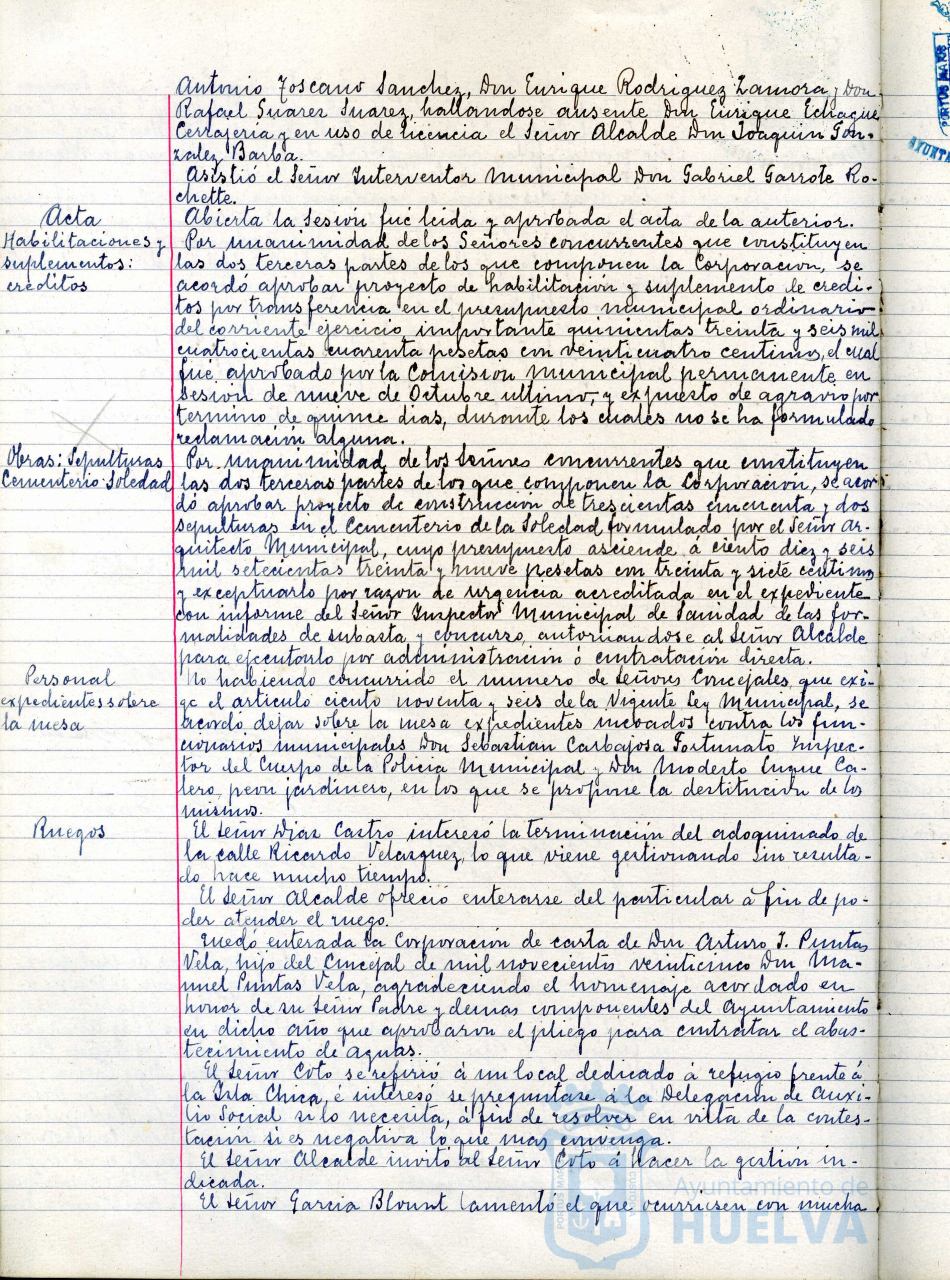 Antonio Toscano Sanchez, Don Enrique Rodriguez Zamora, y Don
Rafael Suarez Suarez, hallandose ausente Don Enrique Echague
Cerrajeria y en uso de licencia el Señor Alcalde Don Joaquin Gon-
zalez Barba.
Asistió el Señor Interventor Municipal Don Gabriel Garrote Ro-
chette.
Acta
Abierta la Sesión fué leida y aprobada el acta de la anterior.
Habilitaciones y
suplementos:
creditos
Por unanimidad de los Señores concurrentes que constituyen
las dos terceras partes de los que componen la Corporacion, se
acordó aprobar proyecto de habilitación y suplemento de credi-
tos por transferencia en el presupuesto municipal ordinario
del corriente ejercicio, importante quinientas treinta y seis mil
cuatrocientas cuarenta pesetas con veinticuatro centimos, el cual
fué aprobado por la Comision Municipal permanente, en
sesión de nueve de Octubre ultimo, y expuesto de agravio por
termino de quince dias, durante los cuales no se ha formulado
reclamación alguna.
Obras: Sepulturas
Cementerio: Soledad
Por unanimidad de los Señores concurrentes que constituyen
las dos terceras partes de los que componen la Corporacion, se acor
dó aprobar proyecto de construccion de trescientas cincuenta y dos
sepulturas en el Cementerio de la Soledad formulado por el Señor Ar-
quitecto Municipal, cuyo presupuesto asciende á ciento diez y seis
mil setecientas treinta y nueve pesetas con treinta y siete centimos
y exceptuarlo por razon de urgencia acreditada en el expediente
con informe del Señor Inspector Municipal de Sanidad de las for-
malidades de subasta y concurso, autorizandose al Señor Alcalde
para ejecutarlo por administración ó contratación directa.
Personal
expedientes sobre
la mesa
No habiendo concurrido el numero de Señores Concejales, que exi-
ge el articulo ciento noventa y seis de la Vigente Ley Municipal, se
acordó dejar sobre la mesa expedientes incoados contra los fun-
cionarios municipales Don Sebastian Carbajosa Fortunato Inspec-
tor del Cuerpo de la Policia Municipal y Don Modesto Luque Ca-
lero, peon jardinero, en los que se propone la destitución de los
mismos.
Ruegos
El Señor Dias Castro interesó la terminación del adoquinado de
la calle Ricardo Velazquez, lo que viene gestionando sin resulta-
do hace mucho tiempo.
El Señor Alcalde ofreció enterarse del particular á fin de po-
der atender el ruego.
Quedó enterada la Corporacion de carta de Don Arturo J. Puntas
Vela, hijo del Concejal de mil novecientos veinticinco Don Ma-
nuel Puntas Vela, agradeciendo el homenaje acordado en
honor de su Señor Padre y demas componentes del Ayuntamiento
en dicho año que aprobaron el pliego para contratar el abas-
tecimiento de aguas.
El Señor Coto se refirió á un local dedicado á refugio frente á
la Isla Chica, é interesó se preguntase á la Delegacion de Auxi-
lio Social si lo necesita, á fin de resolver en vista de la contes-
tación si es negativa lo que mas convenga.
El Señor Alcalde invitó al Señor Coto á hacer la gestión in-
dicada.
El Señor Garcia Blount lamentó el que ocurriesen con mucha
Ayuntamiento de
HUELVA